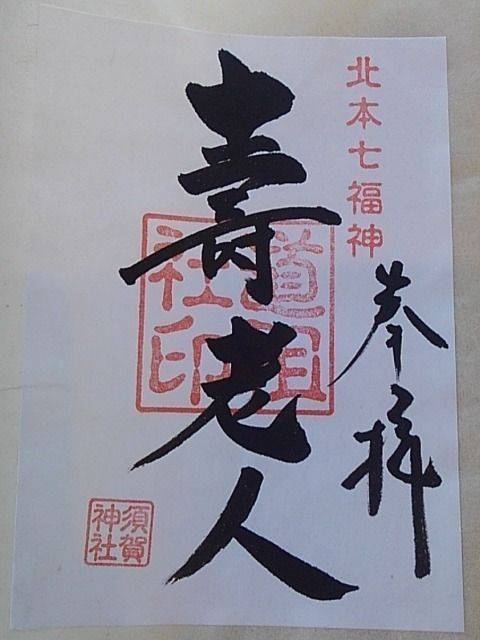 北本七福神
奉拝
壽老人
道祖
社印
須賀
神社